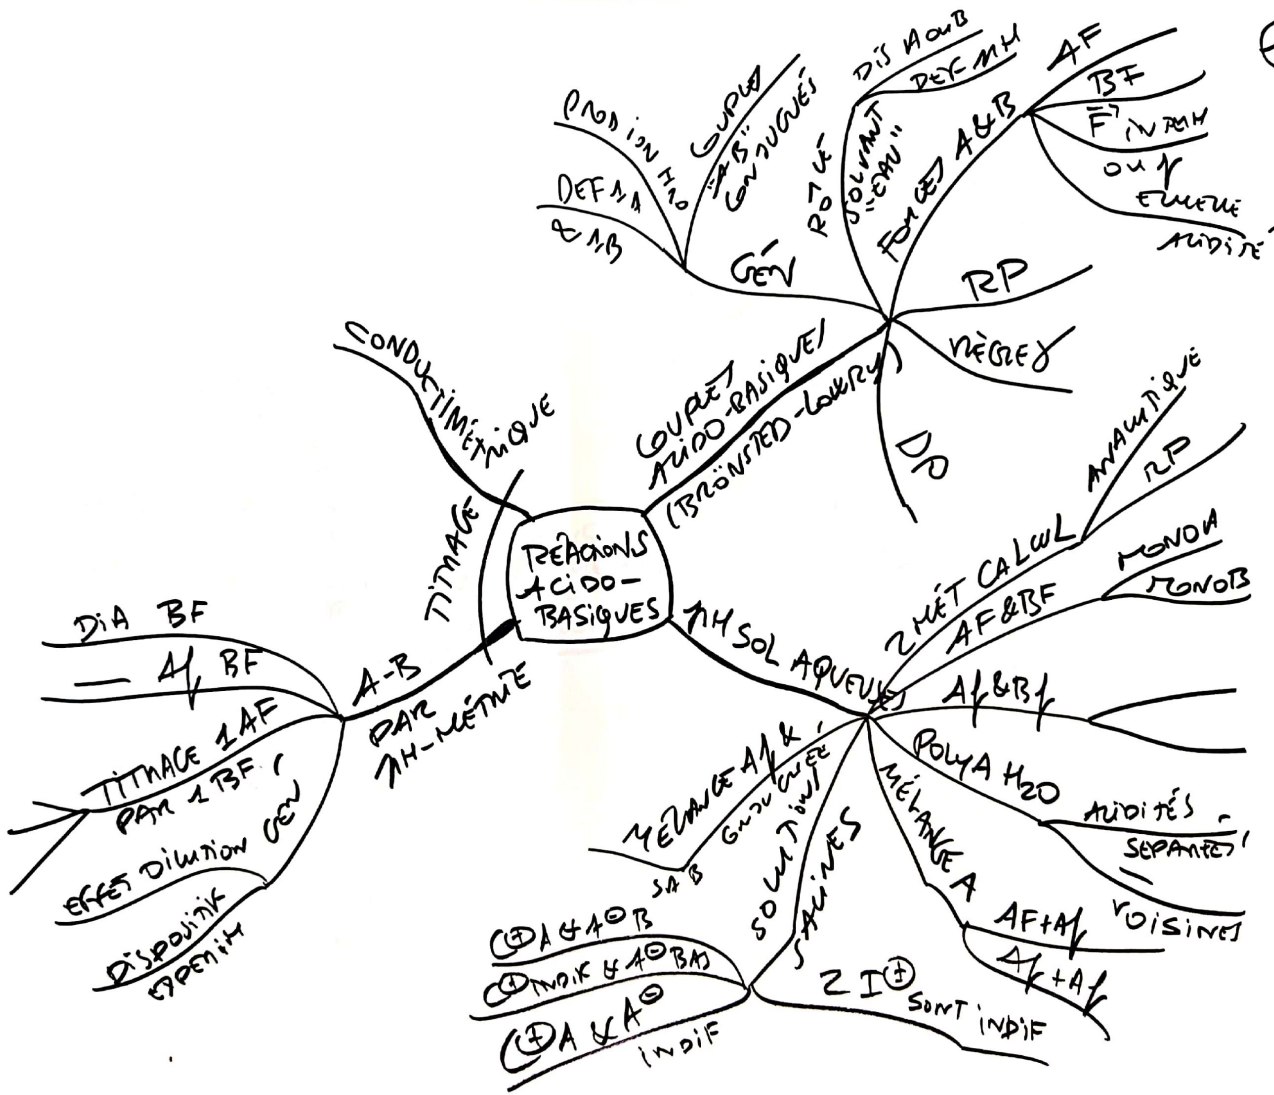 RÉACTIONS
ACIDO-
BASIQUES
COUPLES
ACIDO-BASIQUES
(BRÖNSTED-LOWRY)
GÉN
PROD ION H2O
DEF 1A
& 1B
COUPLES
"AB"
CONJUGUÉS
RÔLE
SOLVANT
"EAU"
DIS A OU B
DEF PH
FORCES A&B
AF
BF
F
OU f
ECHELLE
ACIDITÉ
RP
RÈGLES
DP
PH SOL AQUEUSES
2 MÉT CALCUL
ANALYTIQUE
RP
AF&BF
MONOA
MONOB
Af&Bf
POLYA H2O
ACIDITÉS
SÉPARÉES
— VOISINES
MÉLANGE A
AF+Af
Af+Af
SOLUTIONS
SALINES
2 I⊕
SONT INDIF
C⊕ A & A⊖ B
C⊕ INDIF & A⊖ BAS
C⊕ A & A⊖
INDIF
MÉLANGE Af &
CONJUGUÉE
SAB
TITRAGE
CONDUCTIMÉTRIQUE
A-B
PAR
PH-MÉTRIE
DIA BF
— Af BF
TITRAGE 1AF
PAR 1 BF
GEN
EFFET DILUTION
DISPOSITIF
EXPERIM